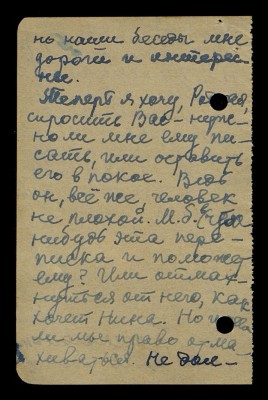 но наши беседы мне
дороги и интерес-
ны.
Теперь я хочу,
спросить Вас – нуж-
но ли мне ему пи-
сать, или оставить
его в покое. Ведь
он, всё же, человек
не плохой. М.б.
нибудь эта пере-
писка и поможет
ему? Или отмах-
нуться от него, как
хочет Нина. Но
ли мы право отма-
хиваться. Не дол-